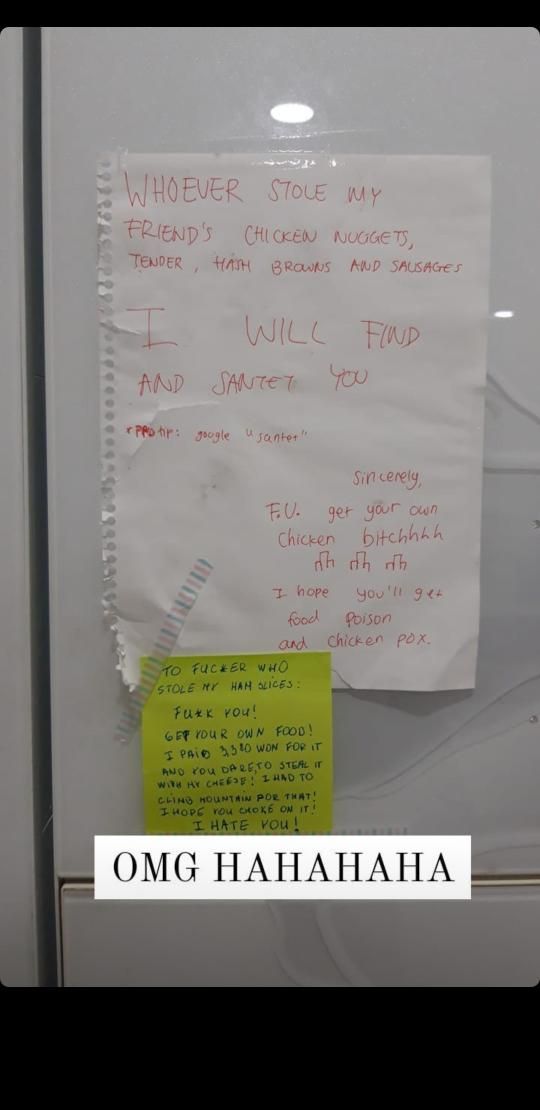 WHOEVER STOLE MY
FRIEND'S CHICKEN NUGGETS,
TENDER, HASH BROWNS AND SAUSAGES
I WILL FIND
AND SANTET YOU
*PRO tip: google "santet"
Sincerely,
F.U. get your own
chicken bitchhhh
I hope you'll get
food poison
and chicken pox.
TO FUCKER WHO
STOLE MY HAM SLICES:
FU*K YOU!
GET YOUR OWN FOOD!
I PAID 3,380 WON FOR IT
AND YOU DARE TO STEAL IT
WITH MY CHEESE! I HAD TO
CLIMB MOUNTAIN FOR THAT!
I HOPE YOU CHOKE ON IT!
I HATE YOU!
OMG HAHAHAHA